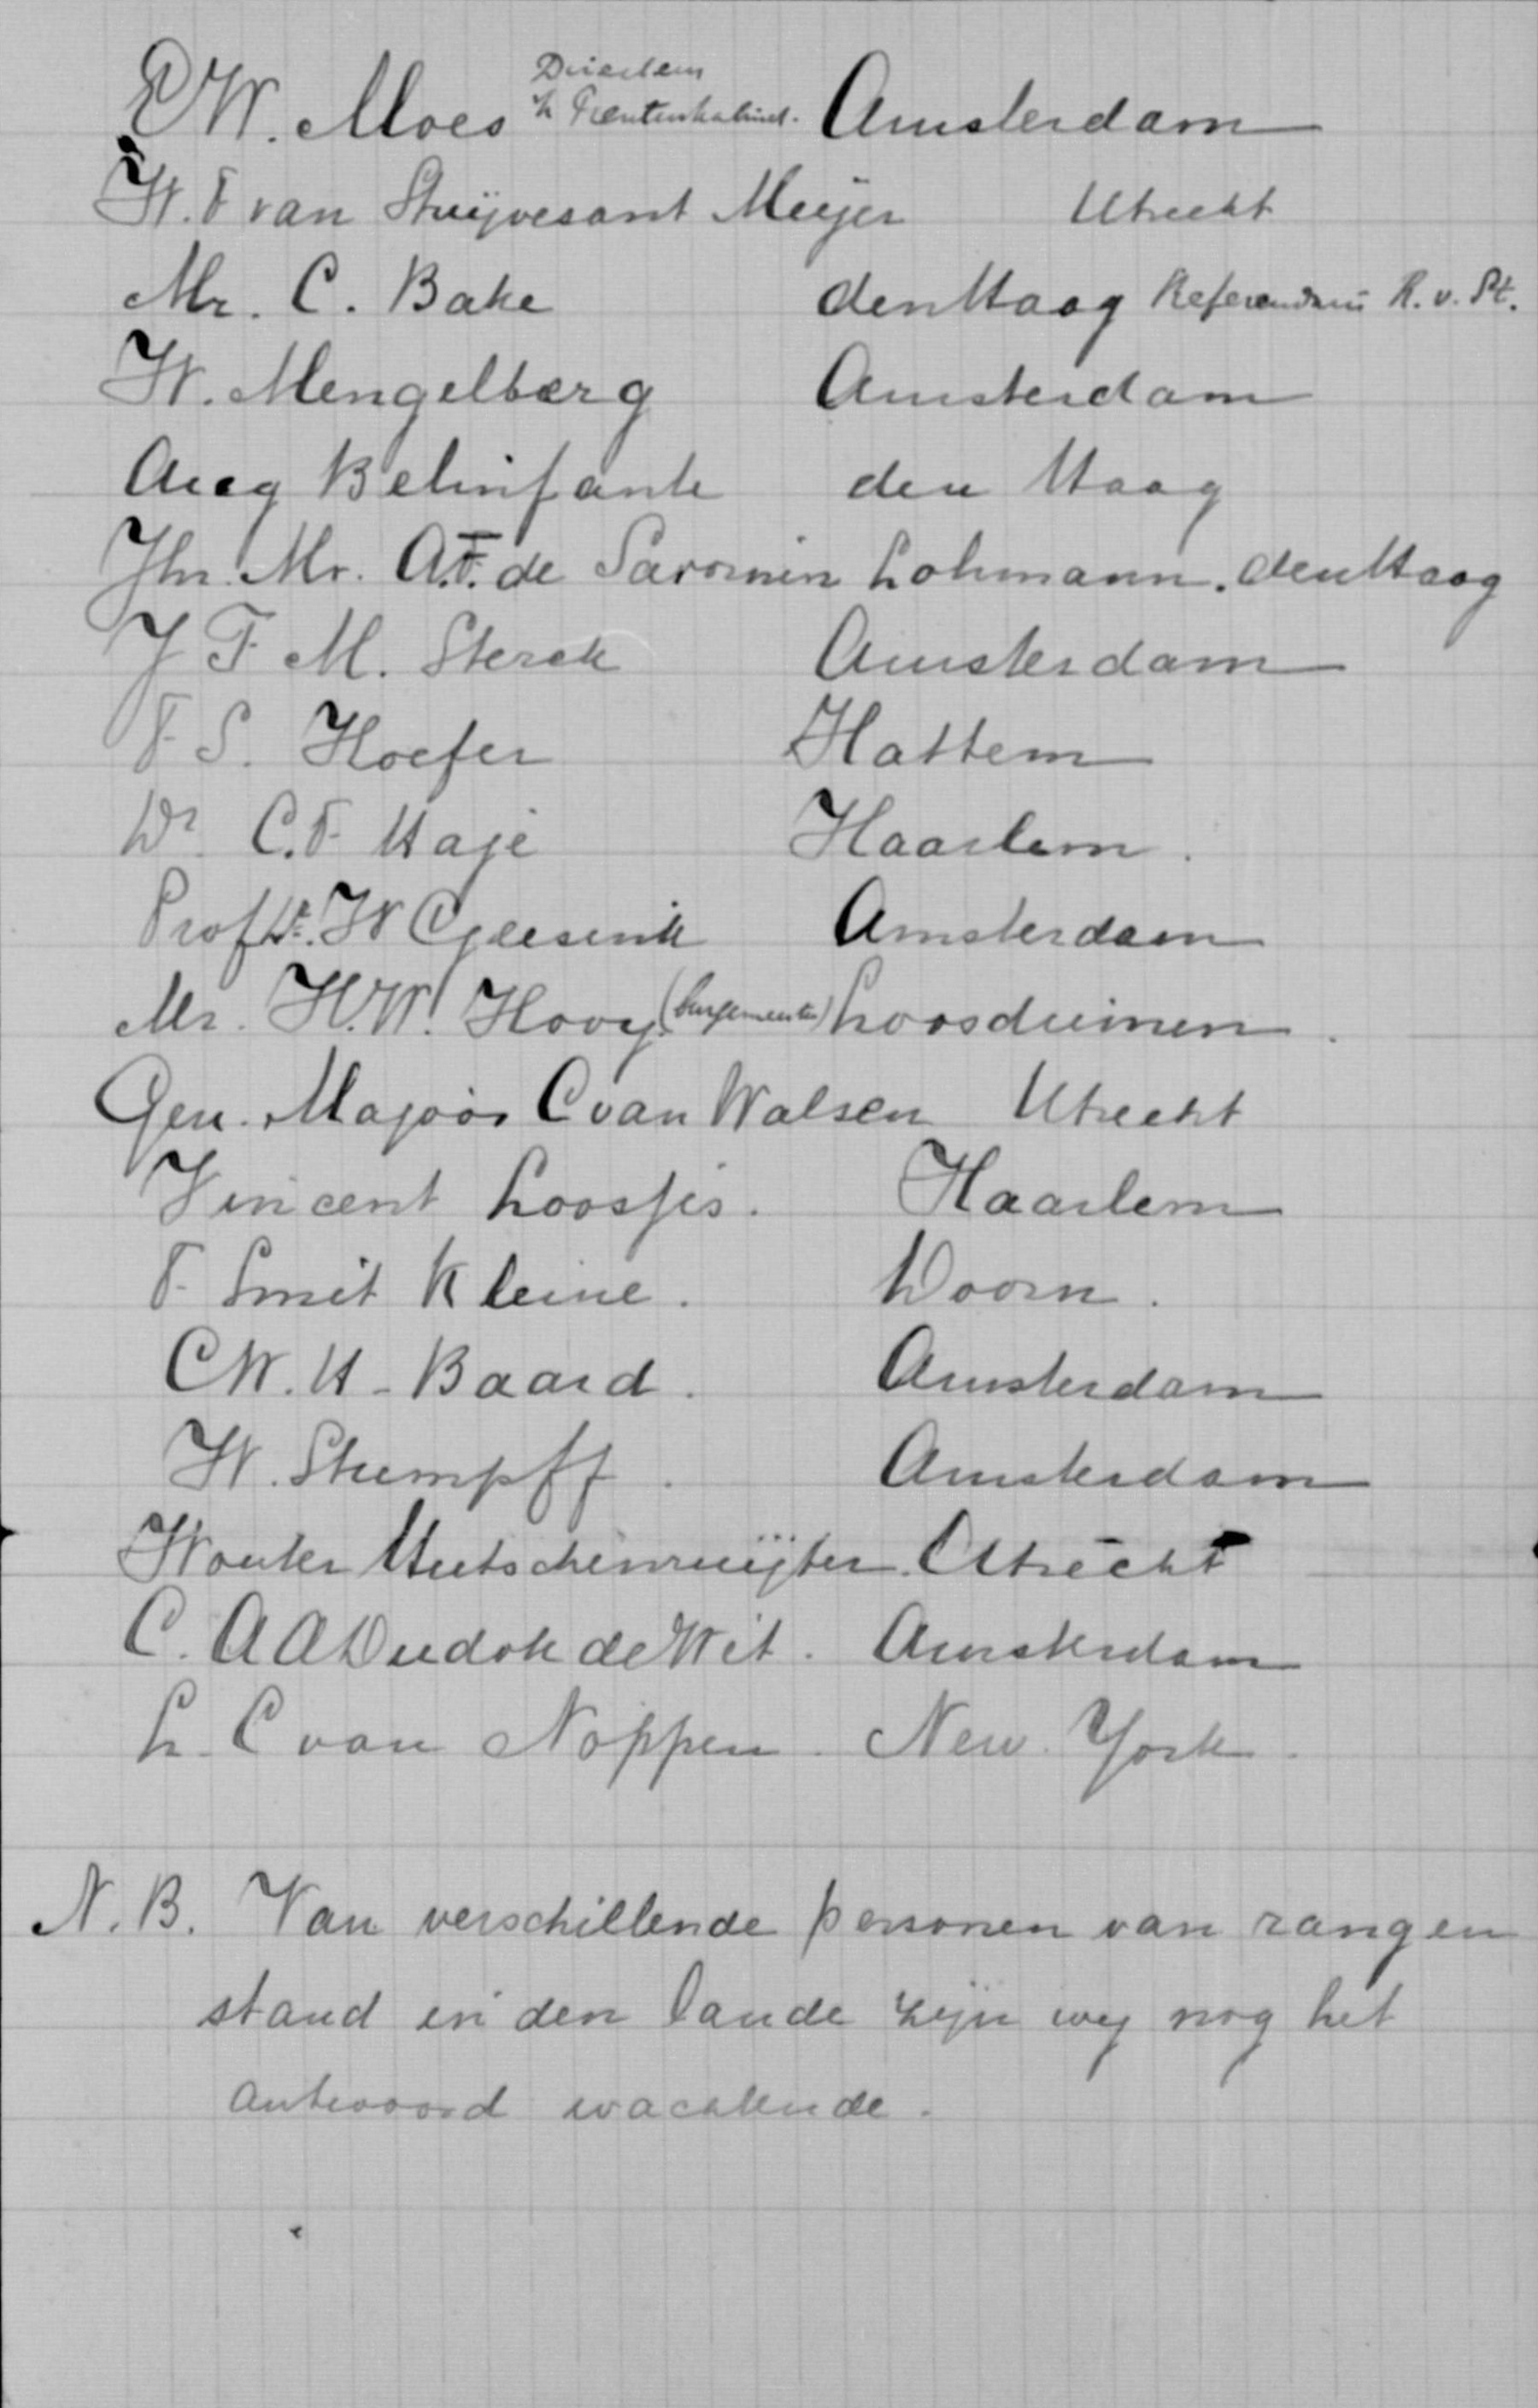 E W. Moes Directeur v. Prentenkabinet. Amsterdam
W. F van Stuÿvesant Meijer Utrecht
Mr. C. Bake den Haag Referendaris R. v. St.
W. Mengelberg Amsterdam
Aug Belinfante den Haag
Jhr. Mr. A.F. de Savornin Lohmann. den Haag
J F M. Sterck Amsterdam
F. S. Hoefer Hattem
Dr. C.F. Haje Haarlem.
Prof Dr. W Geesink Amsterdam
Mr. H.W. Hovy (burgemeester) Loosduinen.
Gen. Majoor C van Walsen Utrecht
Vincent Loosjes. Haarlem
F. Smit Kleine. Doorn.
C W. H. Baard. Amsterdam
W. Stumpff. Amsterdam
Wouter Hutschenruijter. Utrecht
C. A A Dudok de Wit. Amsterdam
L. C van Noppen. New York.
N. B. Van verschillende personen van rang en
stand in den lande zijn wij nog het
antwoord wachtende.